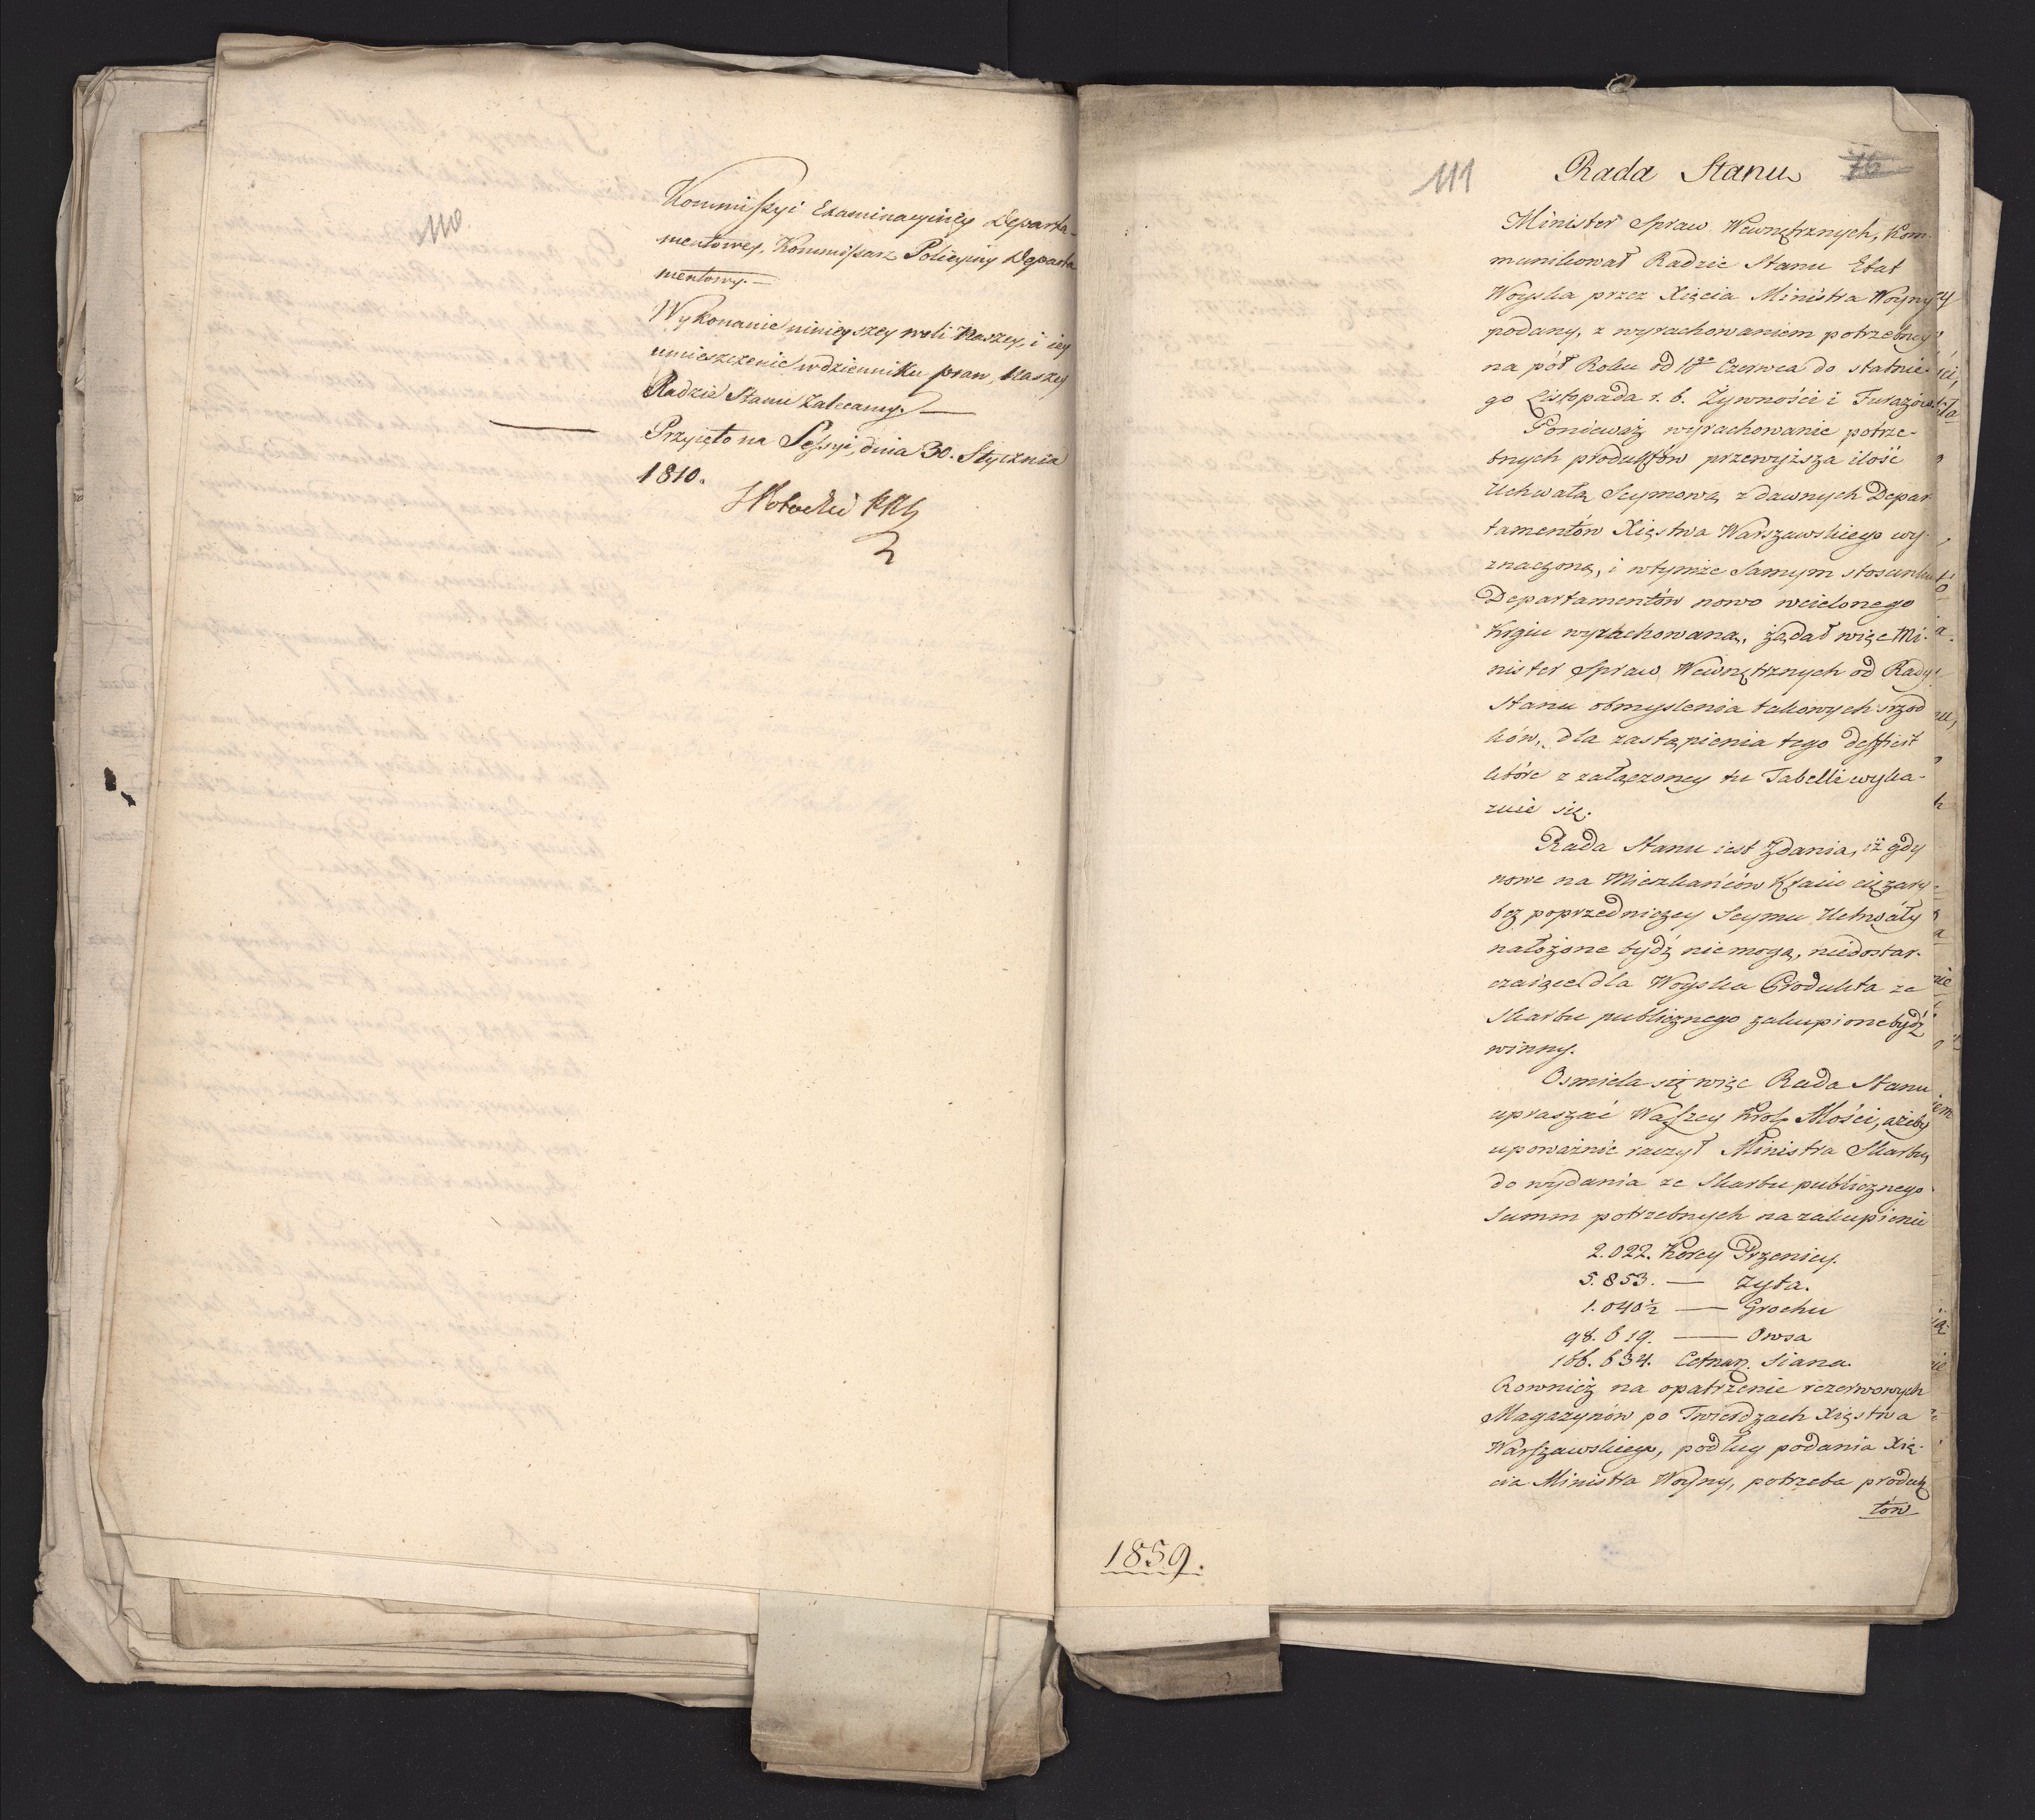 110
Kommissyi Examinacyiney Departa-
mentowey, Kommissarz Policyiny Departa
mentowy. —
Wykonanie ninieyszey woli Naszey, i iey
umieszczenie w dzienniku praw, Naszey
Radzie Stanu zalecamy. —
Przyięto na Sessyi, dnia 30. Stycznia
1810.
111
Rada Stanu
76
Minister Spraw Wewnętrznych, Kom-
munikował Radzie Stanu Etat
Woyska przez Xięcia Ministra Woyny
podany, z wyrachowaniem potrzebney
na pół Roku od 1go Czerwca do statnie-
go Listopada r. b. Żywności i Furażów.
Ponieważ wyrachowanie potrze-
bnych produktów przewyższa ilość
Uchwałą Seymową z dawnych Depar
tamentów Xięstwa Warszawskiego wy-
znaczoną, i wtymże samym stosunku
Departamentów nowo wcielonego
Kraiu wyrachowaną, żądał więc Mi-
nister Spraw Wewnętrznych od Rady
Stanu obmyslenia takowych srzod
ków, dla zastąpienia tego defficit
które z załączoney tu Tabelli wyka-
zuie się.
Rada Stanu iest Zdania, iż gdy
nowe na Mieszkańców Kraiu ciężary
bez poprzedniczey Seymu Uchwały
nałożone bydź niemogą, niedostar-
czaiące dla Woyska Produkta ze
Skarbu publicznego zakupione bydź
winny.
Osmiela się więc Rada Stanu
upraszać Waszey Krol. Mości, ażeby
upoważnić raczył Ministra Skarbu
do wydania ze Skarbu publicznego
Summ potrzebnych na zakupienie
2.022. Korcy Przenicy.
5.853. — Zyta.
1.040½ — Grochu
98.619. — Owsa
166.634. Cetnar. Siana.
Rownież na opatrzenie rezerwowych
Magazynów po Twierdzach Xięstwa
Warszawskiego, podług podania Xię-
cia Ministra Woyny, potrzeba produk
tów
1859.